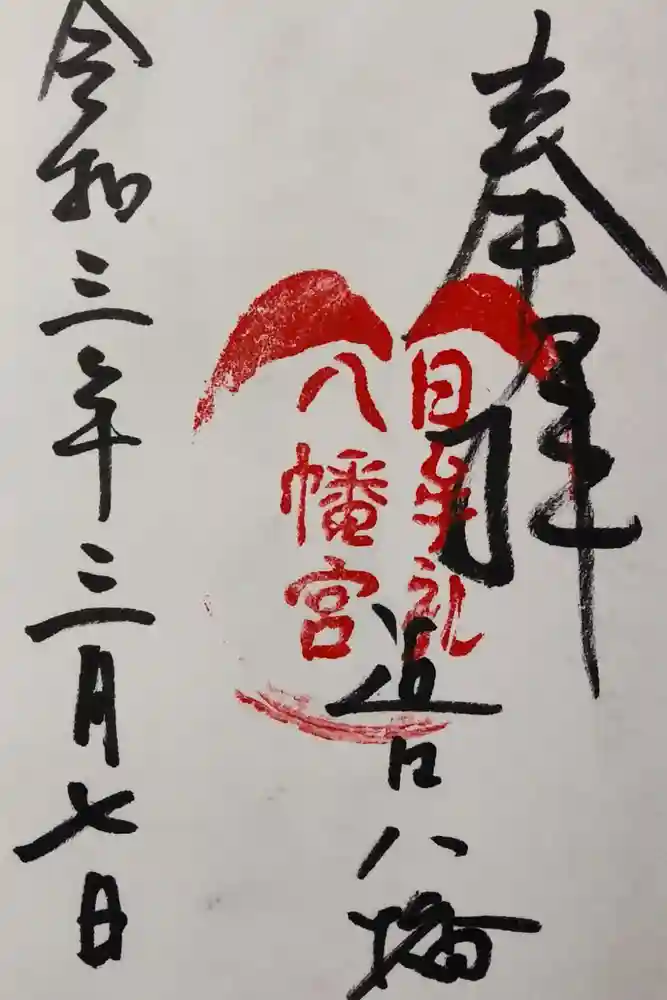 奉拝
日牟礼
八幡宮
道口八幡
令和三年三月七日